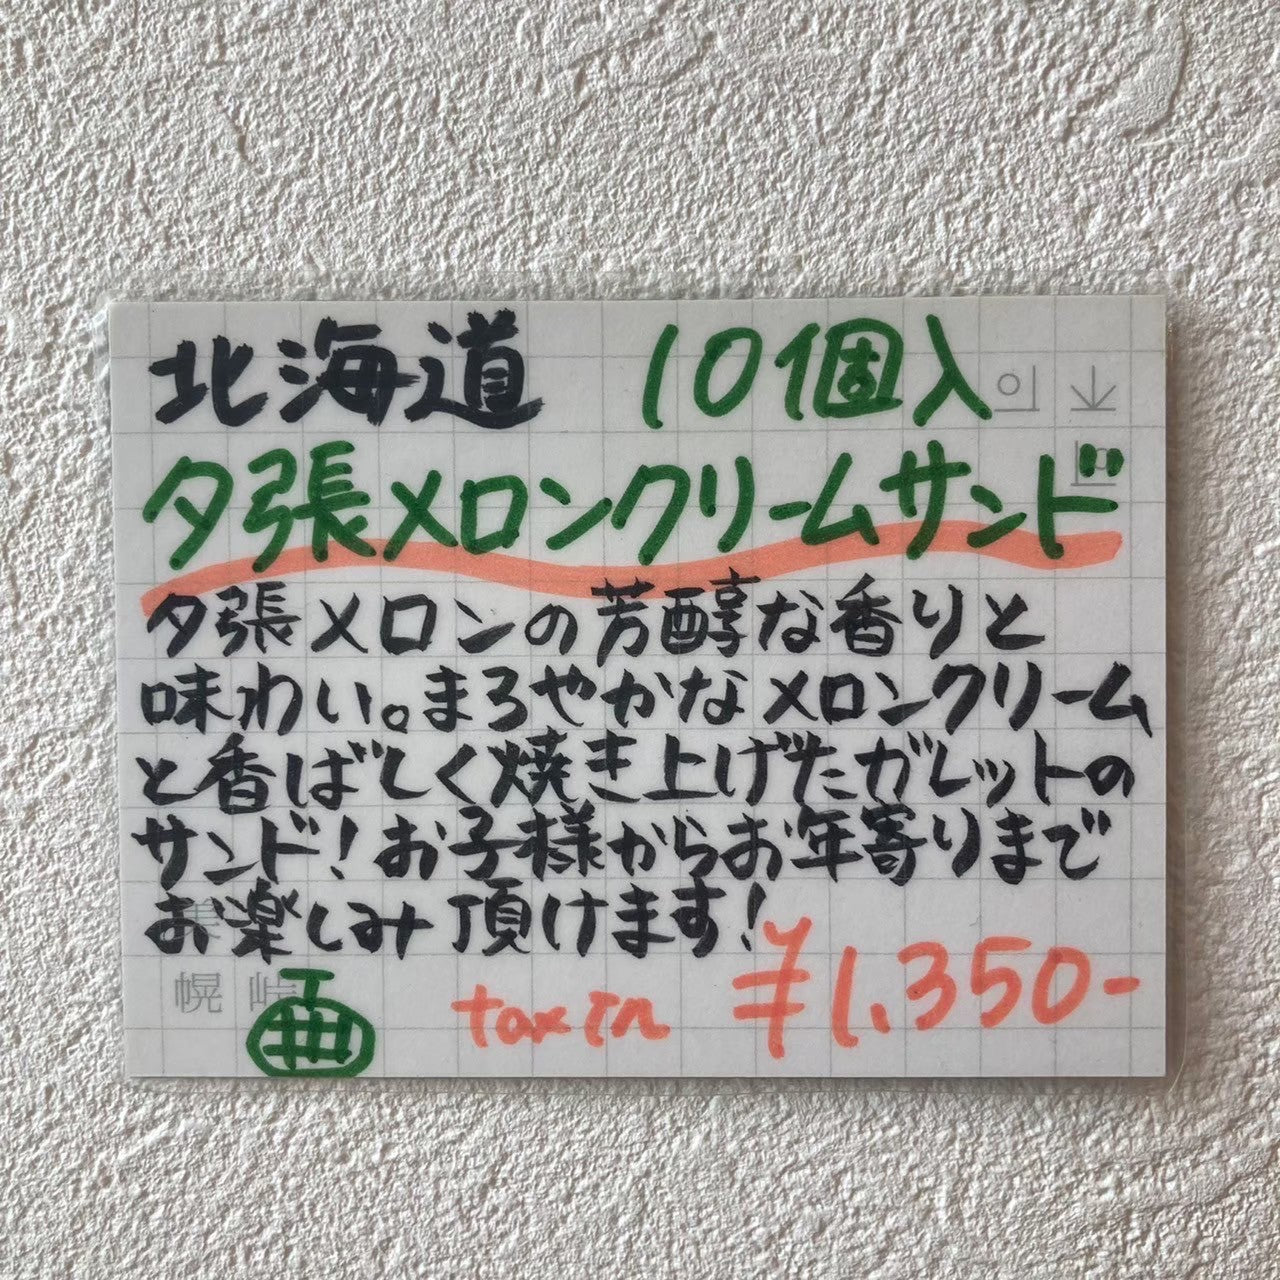 北海道 10個入
夕張メロンクリームサンド
夕張メロンの芳醇な香りと
味わい。まろやかなメロンクリーム
と香ばしく焼き上げたガレットの
サンド!お子様からお年寄りまで
お楽しみ頂けます!
幌 峠
tax in ¥1,350-